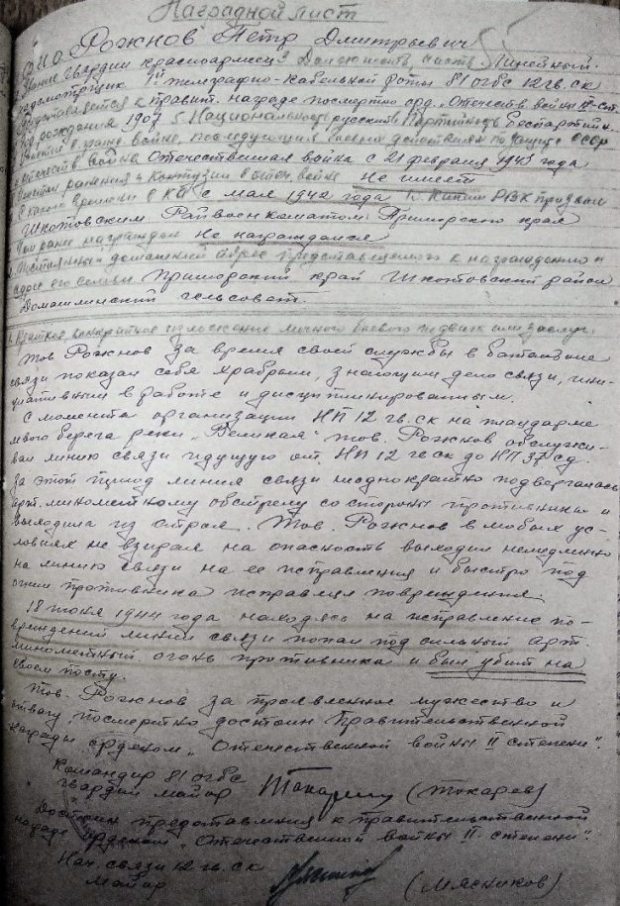 Наградной лист
Ф И О Рожнов Петр Дмитриевич
звание гвардии красноармеец Должность, часть Линейный
1й телеграфно-кабельной роты 81 огбс 12 гв. ск
Представляется к правит. награде посмертно орд. "Отечеств войны II ст.
рождения 1907 Национальность русский Партийность беспартийн.
отечеств война Отечественная война с 21 февраля 1943 года
ранения и контузии в отеч войне Не имеет
С какого времени в КА с мая 1942 года Каким РВК призван
Шкотовским Райвоенкоматом Приморского края
Чем ранее награжден Не награждался
Постоянный домашний адрес представляемого к награждению и
адрес его семьи Приморский край Шкотовский район
сельсовет.
Краткое, конкретное изложение личного боевого подвига или заслуг.
Тов Рожнов за время своей службы в батальоне
связи показал себя храбрым, знающим дело связи, ини-
циативным в работе и дисциплинированным.
С момента организации НП 12 гв. ск на плацдарме
левого берега реки "Великая" тов. Рожнов обслужи-
вал линию связи идущую от НП 12 гв ск до НП 37 сд.
За этот период линия связи неоднократно подвергалась
арт. минометному обстрелу со стороны противника и
выходила из строя. Тов. Рожнов в любых ус-
ловиях не взирая на опасность выходил немедленно
на линию связи на ее исправления и быстро под
огнем противника исправлял повреждения.
18 1944 года находясь на исправление по-
вреждений линии связи попал под сильный арт.
минометный огонь противника и был убит на
своем посту.
Тов. Рожнов за проявленное мужество и
отвагу посмертно достоин Правительственной
награды орденом "Отечественной войны II степени".
Командир 81 огбс
гвардии майор Токарев (Токарев)
Достоин представления к правительственной
награде орденом "Отечественной войны II степени".
Нач. связи 12 гв. ск
Майор (Мясников)